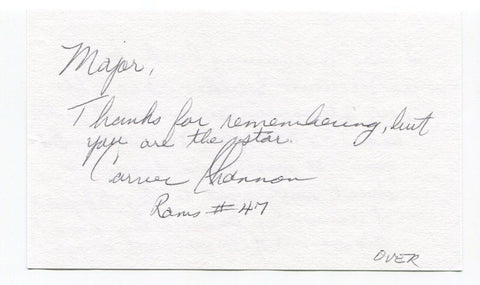 Major,
Thanks for remembering, but
you are the star.
Carver Shannon
Rams #47
OVER